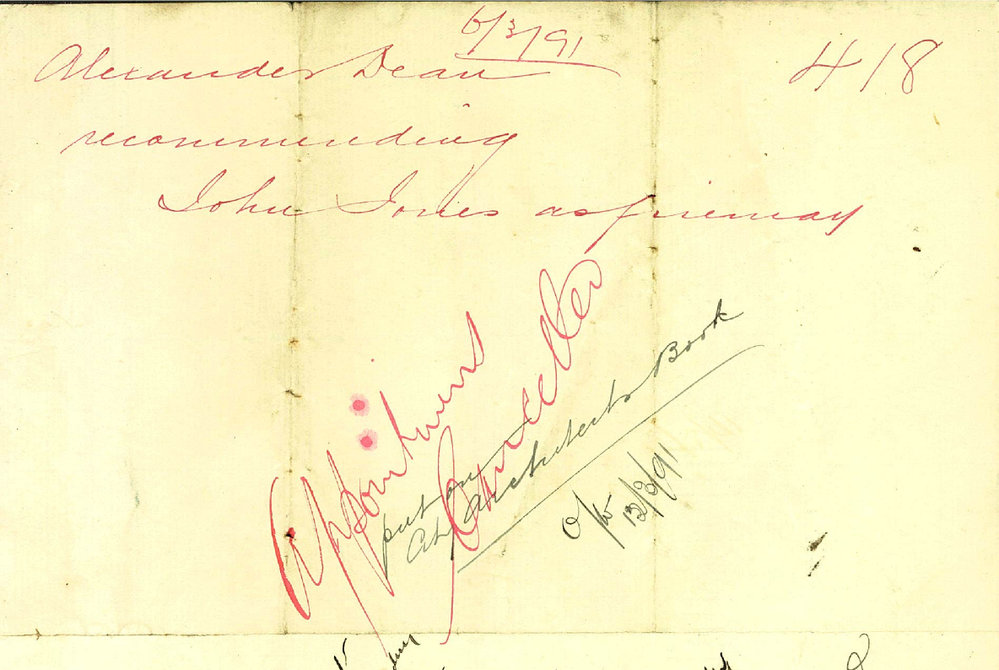 6/3/91
Alexander Dean 418
recommending
John Jones as fireman
Appointment
Cancelled
put on
Architects Book
O/W 12/3/91